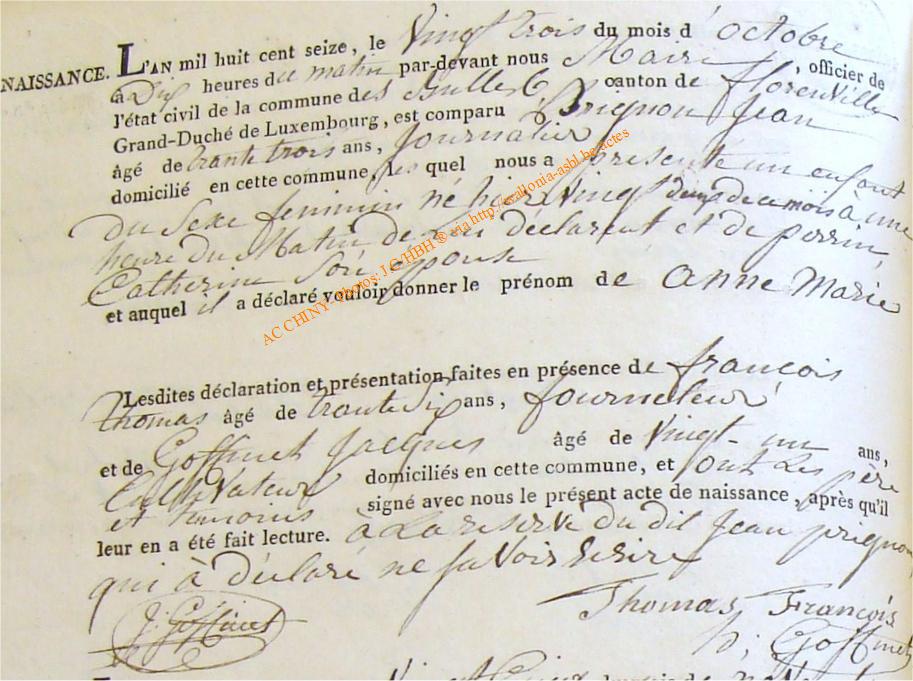 NAISSANCE. L'AN mil huit cent seize, le Vingt trois du mois d'octobre
à Dix heures du matin par-devant nous Maire, officier de
l'état civil de la commune des Bulles canton de florenville
Grand-Duché de Luxembourg, est comparu Prignon Jean
âgé de trante trois ans, Journalier
domicilié en cette commune, lequel nous a presenté un enfant
du Sexe feminin né hier Vingt deux de ce mois à une
heure du Matin de lui déclarent et de perrin
Catherine Son epouse
et auquel il a déclaré vouloir donner le prénom de anne Marie
AC CHINY -Photos: J G/HBH ® via http://wallonia-asbl.be/actes
Lesdites déclaration et présentation faites en présence de françois
thomas âgé de trante Six ans,
et de Goffinet Jacques âgé de Vingt-un ans,
Cultivateur domiciliés en cette commune, et ont Les père
et temoins signé avec nous le présent acte de naissance, après qu'il
leur en a été fait lecture. à La reserve du dit Jean prignon
qui à déclaré ne Savoir
Thomas François
J; Goffinet
J; Goffinet